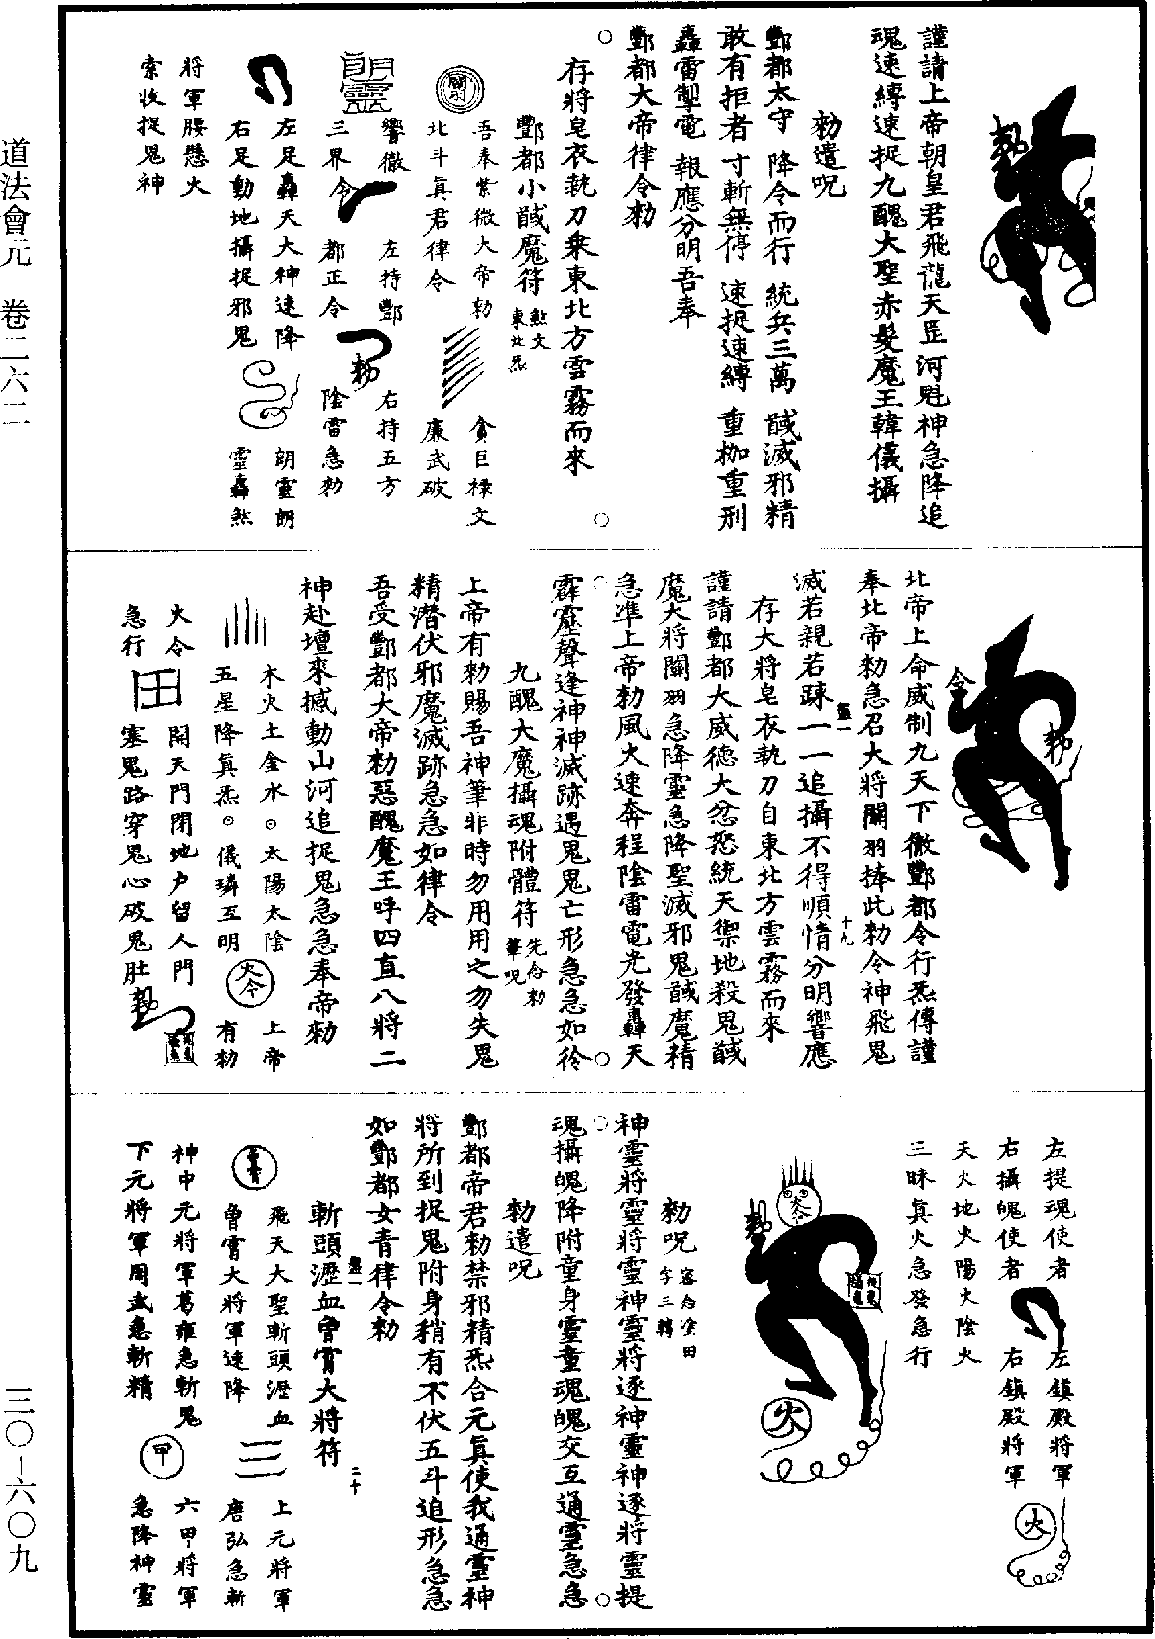 道法會元　卷二六二
三〇－六〇九
勅
謹請上帝朝皇君飛龍天罡河魁神急降追
魂速縛速捉九醜大聖赤髮魔王韓儀攝
勅遣呪
酆都太守　降令而行　統兵三萬　馘滅邪精
敢有拒者　寸斬無停　速捉速縛　重枷重刑
轟雷掣電　報應分明吾奉
酆都大帝律令勅
存將皂衣執刀乘東北方雲霧而來
酆都小馘魔符
煞文
東北炁
吾奉紫微大帝勅
北斗真君律令
貪巨祿文
廉武破
響徹
三界令
左持酆
都正令
勅
右持五方
陰雷急勅
朗靈
左足轟天大神速降
右足動地攝捉邪鬼
朗靈朗
靈轟煞
將軍腰懸火
索收捉鬼神
令
勅
北帝上命威制九天下徹酆都令行炁傳謹
奉北帝勅急召大將關羽捧此勅令神飛鬼
滅若親若疎一一追攝不得順情分明響應
十九
存大將皂衣執刀自東北方雲霧而來
謹請酆都大威德大忿怒統天禦地殺鬼馘
魔大將關羽急降靈急降聖滅邪鬼馘魔精
急準上帝勅風火速奔程陰雷電光發轟天
霹靂聲逢神神滅跡遇鬼鬼亡形急急如令
九醜大魔攝魂附體符
先念勅
筆呪
上帝有勅賜吾神筆非時勿用用之勿失鬼
精潛伏邪魔滅跡急急如律令
吾受酆都大帝勅惡醜魔王呼四直八將二
神赴壇來撼動山河追捉鬼急急奉帝勅
木火土金水
五星降真炁
太陽太陰
儀璘互明
火令
上帝
有勅
火令
急行
田
開天門閉地户留人門
塞鬼路穿鬼心破鬼肚
勅
左提魂使者
右攝魄使者
左鎮殿將軍
右鎮殿將軍
火
天火地火陽火陰火
三昧真火急發急行
勅
火
勅呪
密念金田
字三轉
神靈將靈將靈神靈將逐神靈神逐將靈提
魂攝魄降附童身靈童魂魄交互通靈急急
勅遣呪
酆都帝君勅禁邪精炁合元真使我通靈神
將所到捉鬼附身稍有不伏五斗追形急急
如酆都女青律令勅
斬頭瀝血曾霄大將符
二十
飛天大聖斬頭瀝血
曾霄大將軍速降
三
上元將軍
唐弘急斬
神中元將軍葛雍急斬鬼
下元將軍周武急斬精
甲
六甲將軍
急降神靈